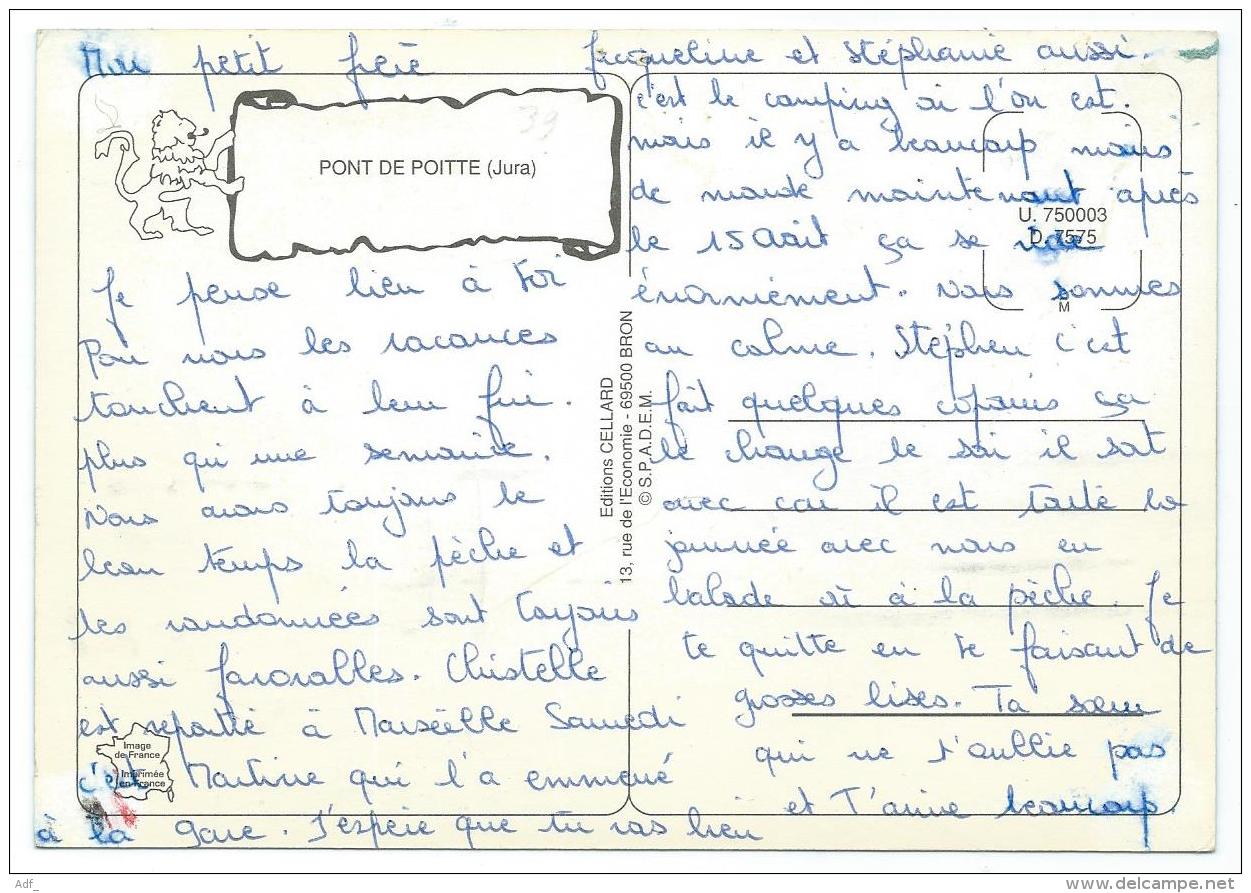 Mon petit frère
PONT DE POITTE (Jura)
39
Je pense bien à toi
Pour nous les vacances
touchent à leur fin.
plus qu'une semaine.
Nous avons toujours le
beau temps la pêche et
les randonnées sont toujours
aussi favorables. Christelle
est repartie à Marseille Samedi
c'est Martine qui l'a emmené
à la gare. J'espère que tu vas bien
Image
de France
Imprimée
en France
Editions CELLARD
13, rue de l'Economie - 69500 BRON
© S.P.A.D.E.M.
Jacqueline et Stéphanie aussi.
c'est le camping où l'on est.
mais il y a beaucoup moins
de monde maintenant après
le 15 Août ça se vide
énormément. Nous sommes
au calme. Stéphen c'est
fait quelques copains ça
le change le soir il sort
avec car il est toute la
journée avec nous en
balade où à la pèche. Je
te quitte en te faisant de
grosses bises. Ta soeur
qui ne t'oublie pas
et T'aime beaucoup.
U. 750003
D. 7575
M
Adf_
www.delcampe.net